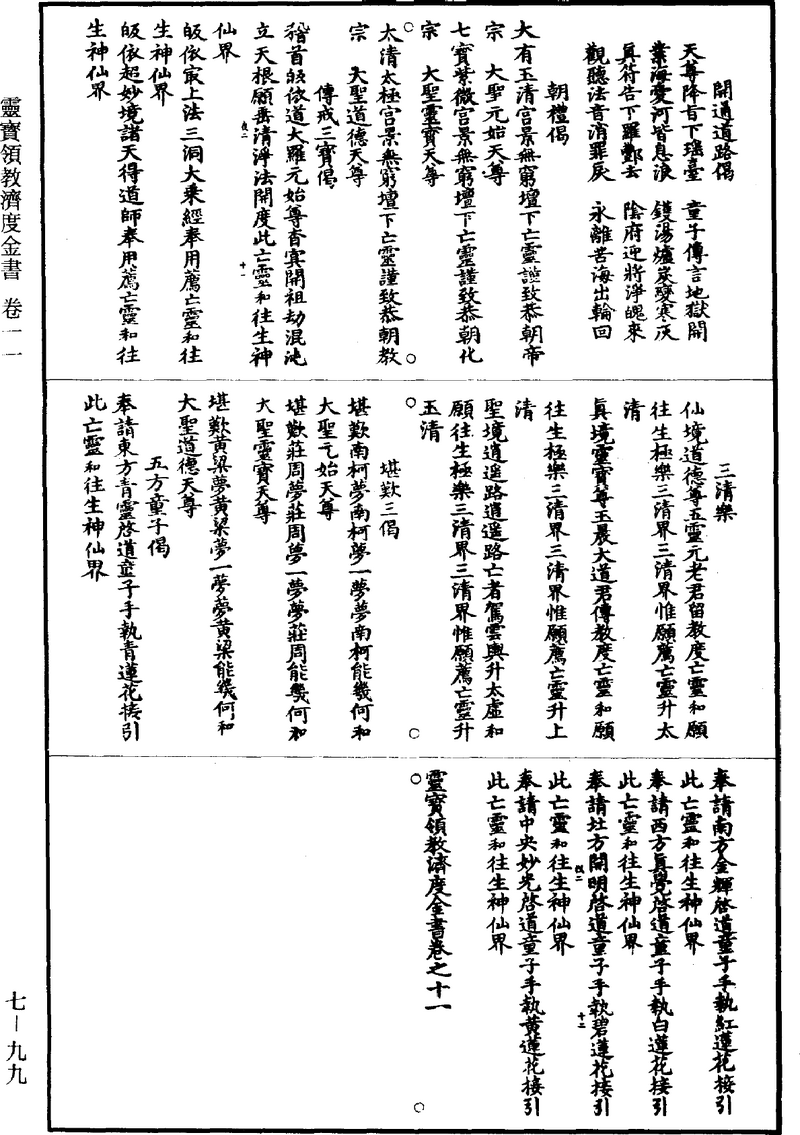 開通道路偈
天尊降旨下瑤臺　童子傳言地獄開
業海愛河皆息浪　鑊湯爐炭變寒灰
真符告下羅酆去　陰府迎將淨魄來
觀聽法音消罪戾　永離苦海出輪回
朝禮偈
大有玉清宫景無窮壇下亡靈謹致恭朝帝
宗　大聖元始天尊
七寶紫微宫景無窮壇下亡靈謹致恭朝化
宗　大聖靈寶天尊
太清太極宫景無窮壇下亡靈謹致恭朝教
宗　大聖道德天尊
傳戒三寶偈
稽首皈依道大羅元始尊杳冥開祖劫混沌
立天根願垂清淨法開度此亡靈和往生神
仙界
皈依最上法三洞大乘經奉用薦亡靈和往
生神仙界
皈依超妙境諸天得道師奉用薦亡靈和往
生神仙界
三清樂
仙境道德尊五靈元老君留教度亡靈和願
往生極樂三清界三清界惟願薦亡靈升太
清
真境靈寶尊玉晨大道君傳教度亡靈和願
往生極樂三清界三清界惟願薦亡靈升上
清
聖境逍遥路逍遥路亡者駕雲輿升太虛和
願往生極樂三清界三清界惟願薦亡靈升
玉清
堪歎三偈
堪歎南柯夢南柯夢一夢夢南柯能幾何和
大聖元始天尊
堪歎莊周夢莊周夢一夢夢莊周能幾何和
大聖靈寶天尊
堪歎黄粱夢黄粱夢一夢夢黄粱能幾何和
大聖道德天尊
五方童子偈
奉請東方青靈啓道童子手執青蓮花接引
此亡靈和往生神仙界
奉請南方金輝啓道童子手執紅蓮花接引
此亡靈和往生神仙界
奉請西方真覺啓道童子手執白蓮花接引
此亡靈和往生神仙界
奉請北方開明啓道童子手執碧蓮花接引
此亡靈和往生神仙界
奉請中央妙光啓道童子手執黄蓮花接引
此亡靈和往生神仙界
靈寶領教濟度金書卷之十一
靈寶領教濟度金書　卷一一
七—九九